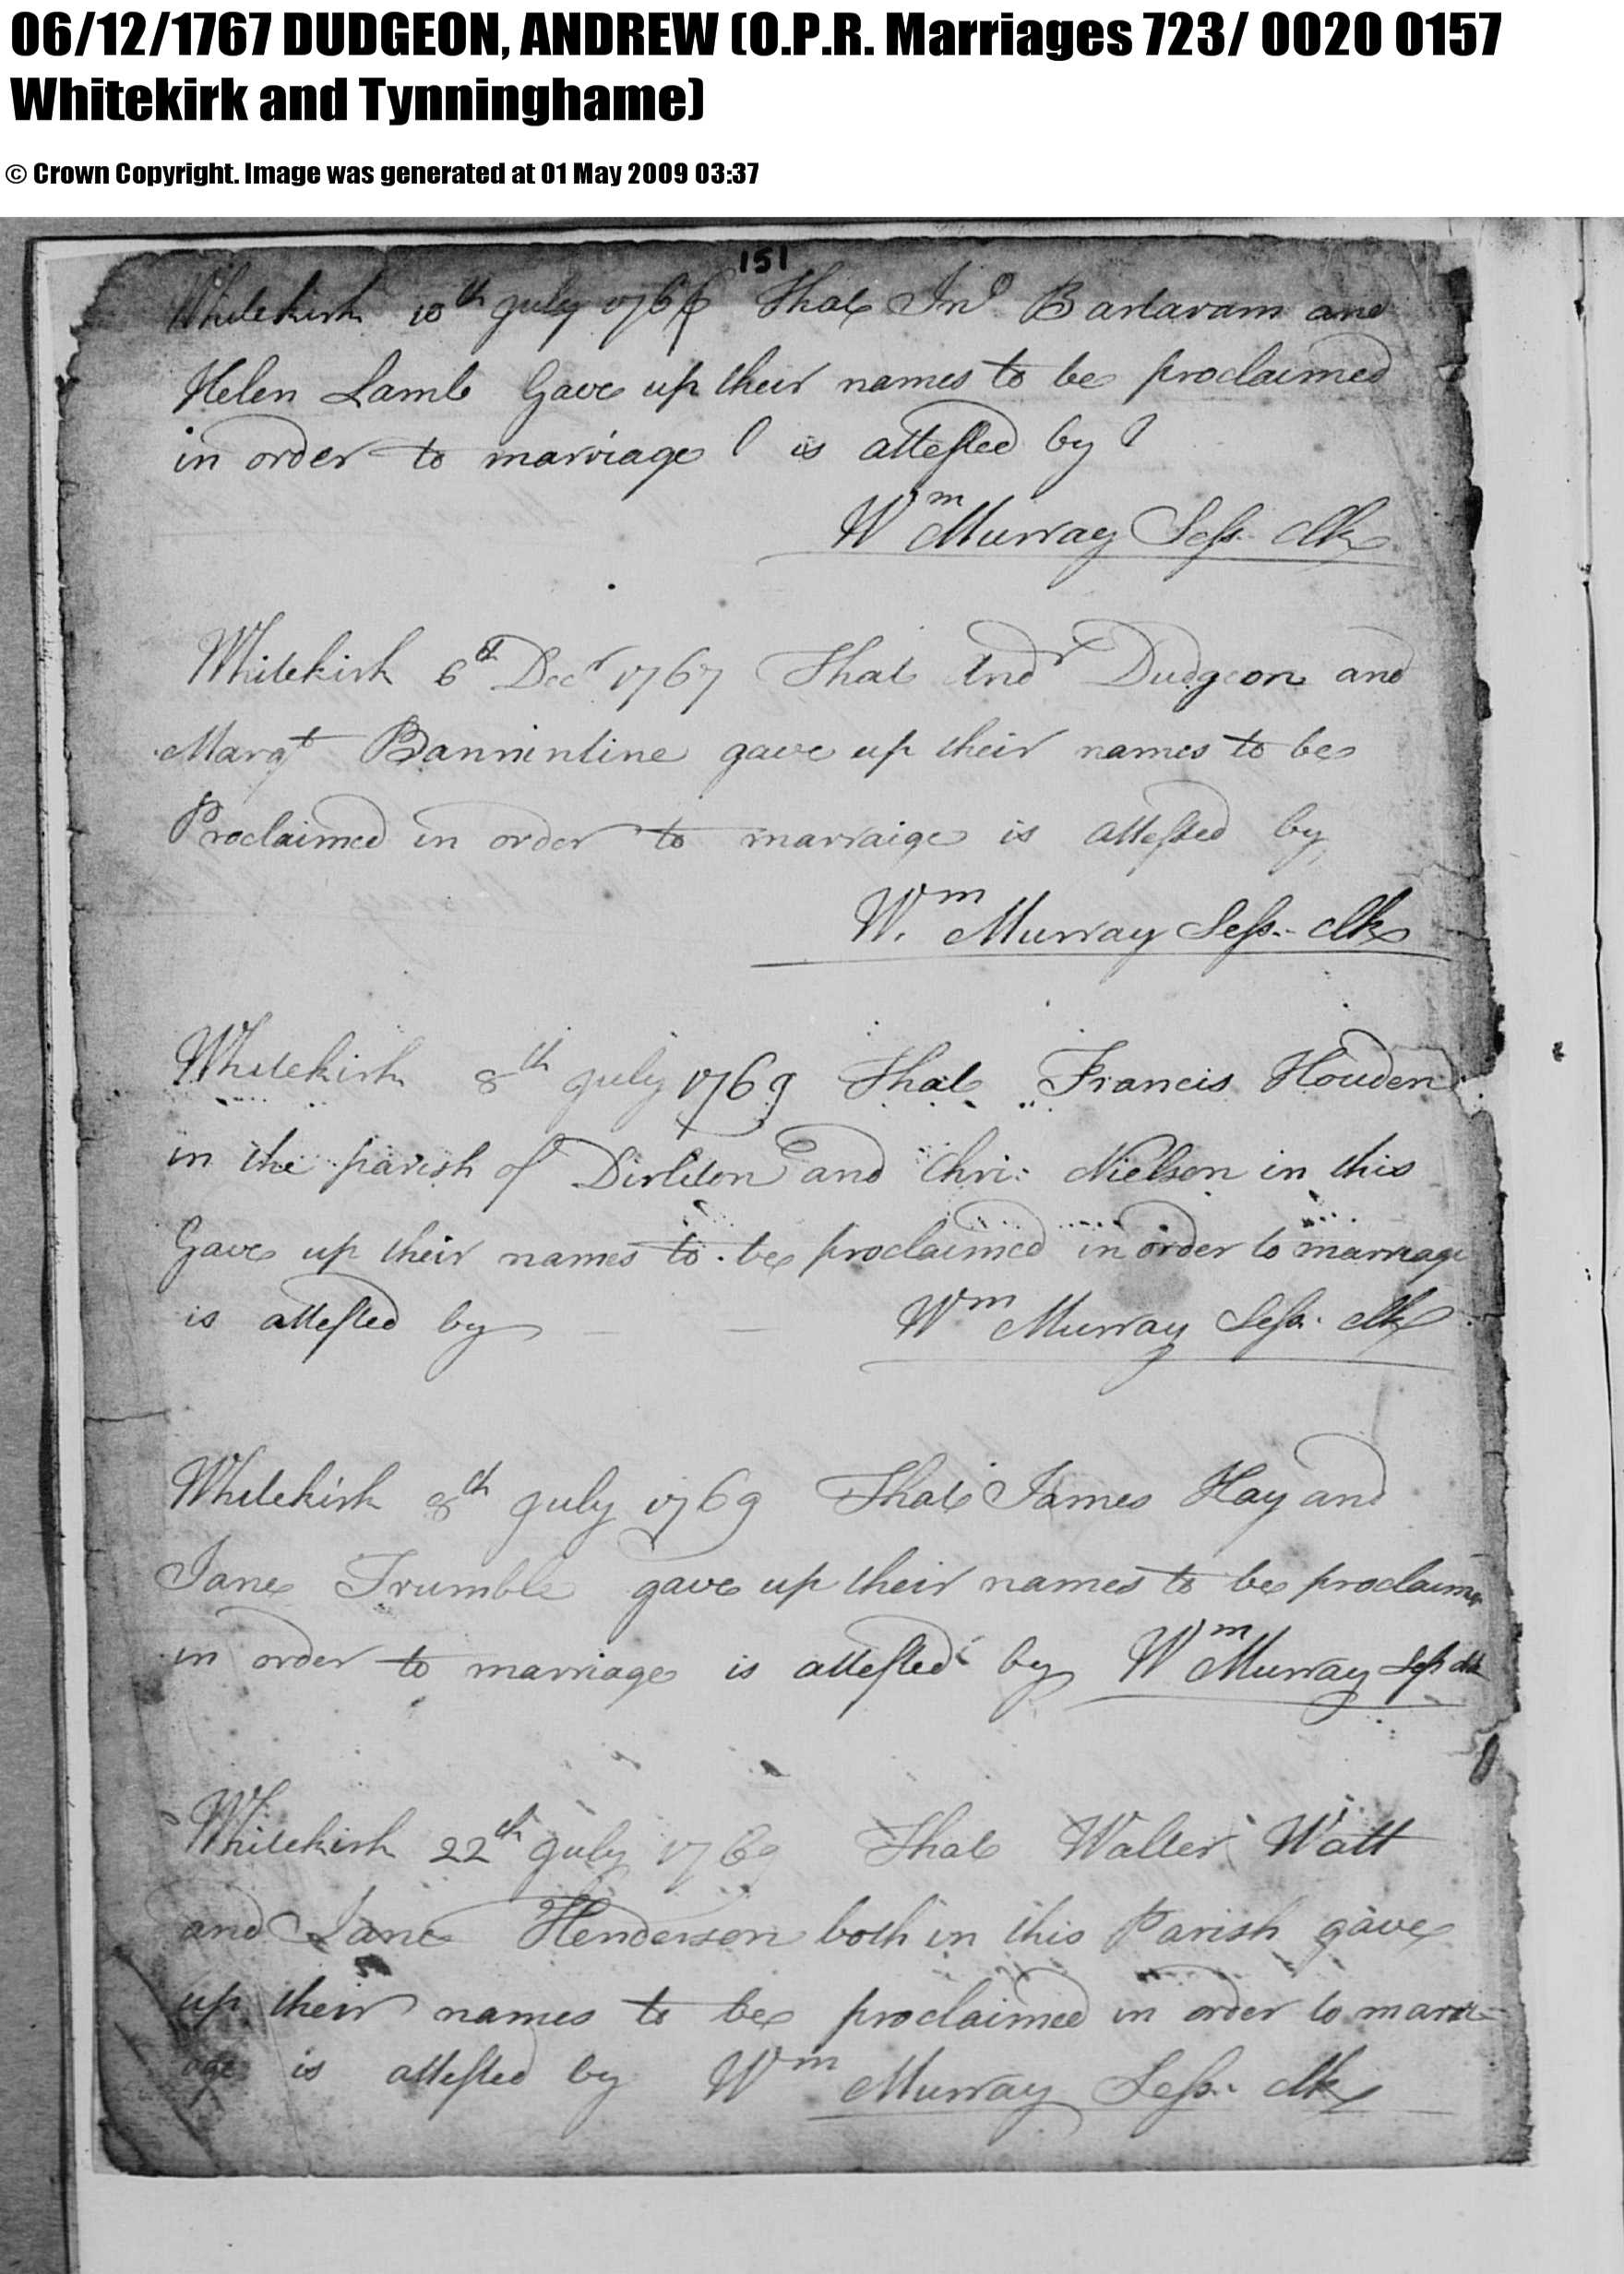 06/12/1767 DUDGEON, ANDREW (O.P.R. Marriages 723/ 0020 0157
Whitekirk and Tynninghame)
© Crown Copyright. Image was generated at 01 May 2009 03:37
151
Whitekirk 10th July That Jno Bartaram and
Helen Lamb Gave up their names to be proclaimed
in order to marriage is attested by
Wm Murray Sess. Clk
Whitekirk 6th Decr 1767 That Andr Dudgeon and
Margt Bannintine gave up their names to be
Proclaimed in order to marraige is attested by
Wm Murray Sess.- Clk
Whitekirk 8th July 1769 That Francis Houden
in the parish of Dirliton and Chri: Nielson in this
Gave up their names to be proclaimed in order to marriage
is attested by — — Wm Murray Sess. Clk
Whitekirk 8th July 1769 That James Hay and
Jane Trumble gave up their names to be proclaim
in order to marriage is attested by Wm Murray Sess Clk
Whitekirk 22th July 1769 That Walter Watt
and Jane Henderson both in this Parish gave
up their names to be proclaimed in order to marri-
age is attested by Wm Murray Sess. Clk